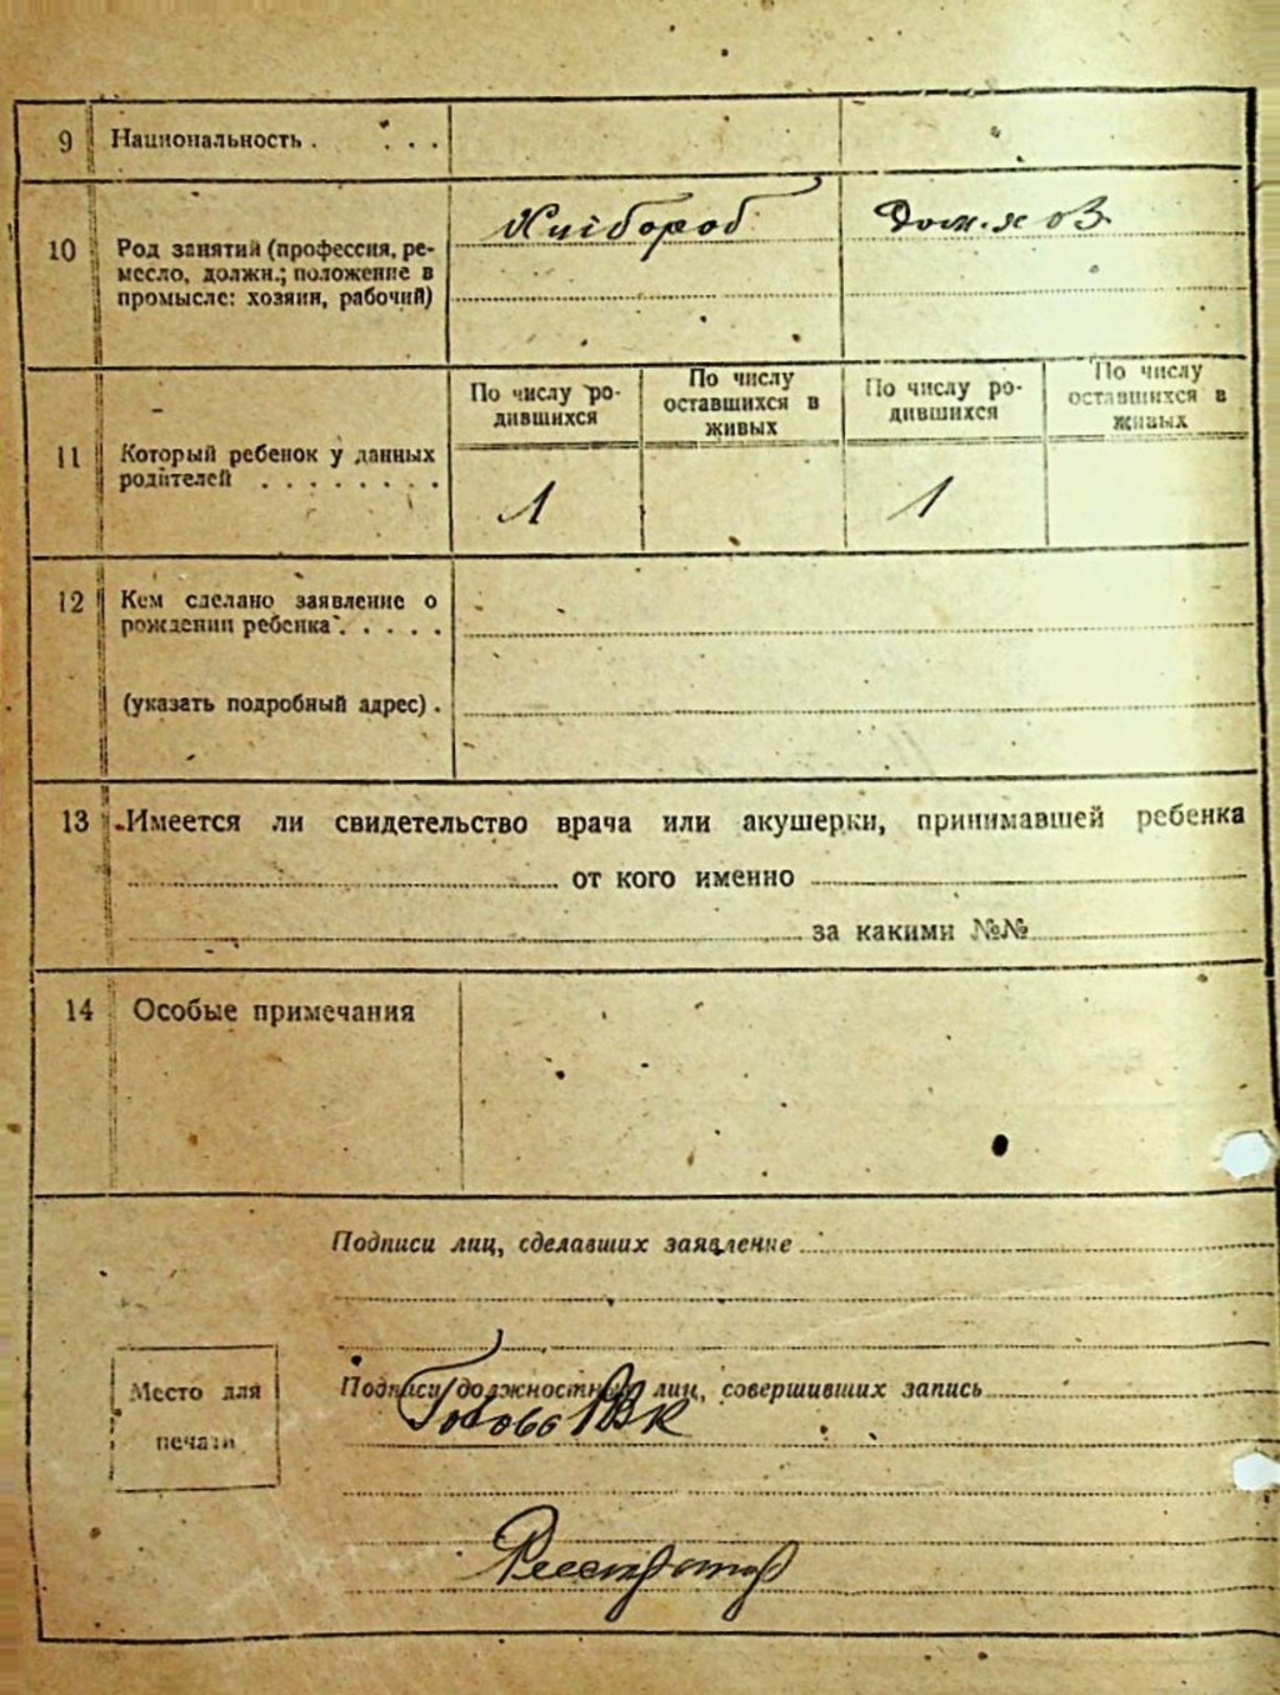 9 Национальность . . . .
10 Род занятий (профессия, ре-
месло, должн.; положение в
промысле: хозяин, рабочий)
Хлібороб Дом. х оз.
11 Который ребенок у данных
родителей . . . . . . . .
По числу ро-
дившихся
По числу
оставшихся в
живых
По числу ро-
дившихся
По числу
оставшихся в
живых
1 1
12 Кем сделано заявление о
рождении ребенка . . . . .
(указать подробный адрес) .
13 Имеется ли свидетельство врача или акушерки, принимавшей ребенка
от кого именно
за какими №№
14 Особые примечания
Подписи лиц, сделавших заявление
Место для
печати
Подписи должностных лиц, совершивших запись
Голова РВК
Реєстратор